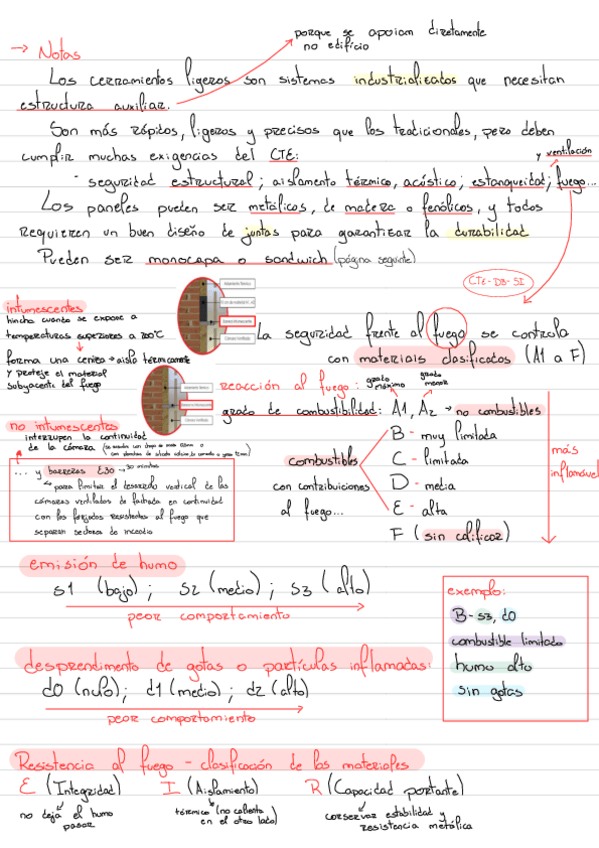 porque se apoiam diretamente
no edifício
→ Notas
Los cerramientos ligeros son sistemas industrializados que necesitan
estructura auxiliar.
Son más rápidos, ligeros y precisos que los tradicionales, pero deben
cumplir muchas exigencias del CTE:
y ventilación
- seguridad estructural; aislamento térmico, acústico; estanqueidad; fuego...
Los paneles pueden ser metálicos, de madera o fenólicos, y todos
requieren un buen diseño de juntas para garantizar la durabilidad
Pueden ser monocapa o sandwich (página seguinte)
CTE-DB-SI
intumescentes
hincha cuando se expone a
temperaturas superiores a 200ºC
forma una ceniza → aisla térmicamente
y protege el material
subyacente del fuego
La seguridad frente al fuego se controla
con materiais clasificados (A1 a F)
reacción al fuego:
grado máximo
grado menor
grado de combustibilidad: A1, A2 → no combustibles
B - muy limitada
combustibles
C - limitada
con contribuiciones
D - media
al fuego...
E - alta
F (sin calificar)
más
inflamável
no intumescentes
interrumpen la continuidad
de la cámara
... y barreras E30 → 30 minutos
para limitar el desarrollo vertical de las
cámaras ventiladas de fachada en continuidad
con los forjados resistentes al fuego que
separan sectores de incendio
emisión de humo
s1 (bajo); s2 (medio); s3 (alto)
peor comportamiento
desprendimento de gotas o partículas inflamadas:
d0 (nulo); d1 (medio); d2 (alto)
peor comportamiento
exemplo:
B-s3, d0
combustible limitado
humo alto
sin gotas
Resistencia al fuego - clasificación de las materiales
E (Integridad) I (Aislamiento) R (Capacidad portante)
no deja el humo
pasar
térmico (no calienta
en el otro lado)
conservar estabilidad y
resistencia metálica